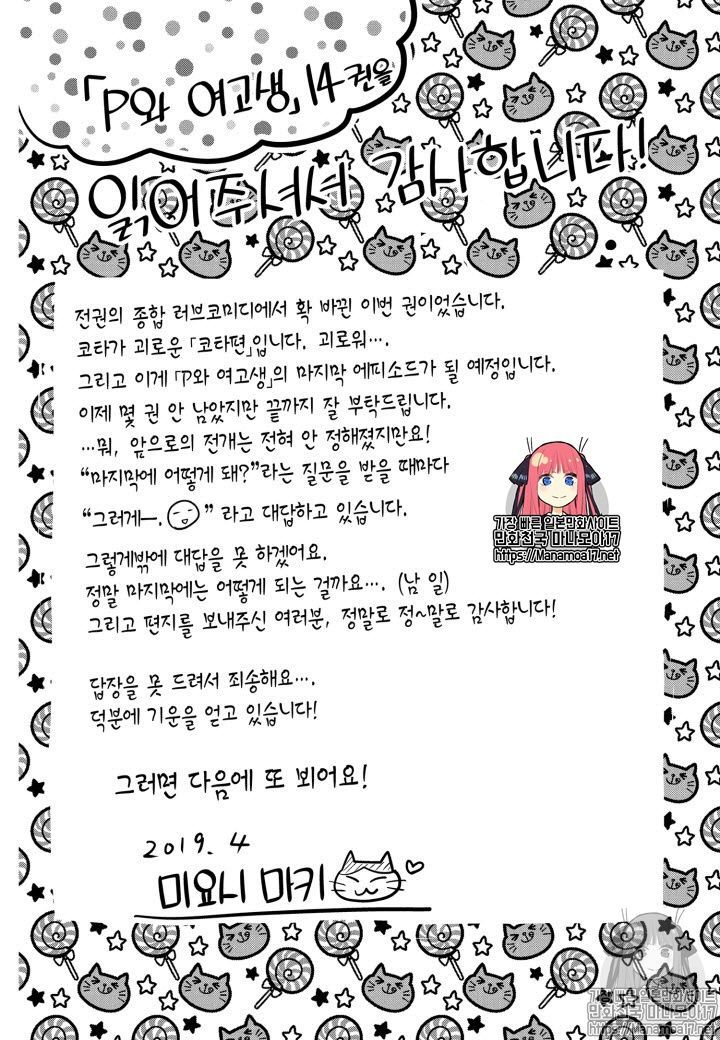 「P와 여고생」 14권을
읽어주셔서 감사합니다!
전권의 종합 러브코미디에서 확 바뀐 이번 권이었습니다.
코타가 괴로운 「코타편」입니다. 괴로워….
그리고 이게 「P와 여고생」의 마지막 에피소드가 될 예정입니다.
이제 몇 권 안 남았지만 끝까지 잘 부탁드립니다.
…뭐, 앞으로의 전개는 전혀 안 정해졌지만요!
“마지막에 어떻게 돼?”라는 질문을 받을 때마다
“그러게ㅡ.” 라고 대답하고 있습니다.
그렇게밖에 대답을 못 하겠어요.
정말 마지막에는 어떻게 되는 걸까요…. (남 일)
그리고 편지를 보내주신 여러분, 정말로 정~말로 감사합니다!
가장 빠른 일본만화사이트
만화천국 마나모아17
https://Manamoa17.net
답장을 못 드려서 죄송해요….
덕분에 기운을 얻고 있습니다!
그러면 다음에 또 뵈어요!
2019. 4
미요시 마키
가장 빠른 일본만화사이트
만화천국 마나모아17
https://Manamoa17.net